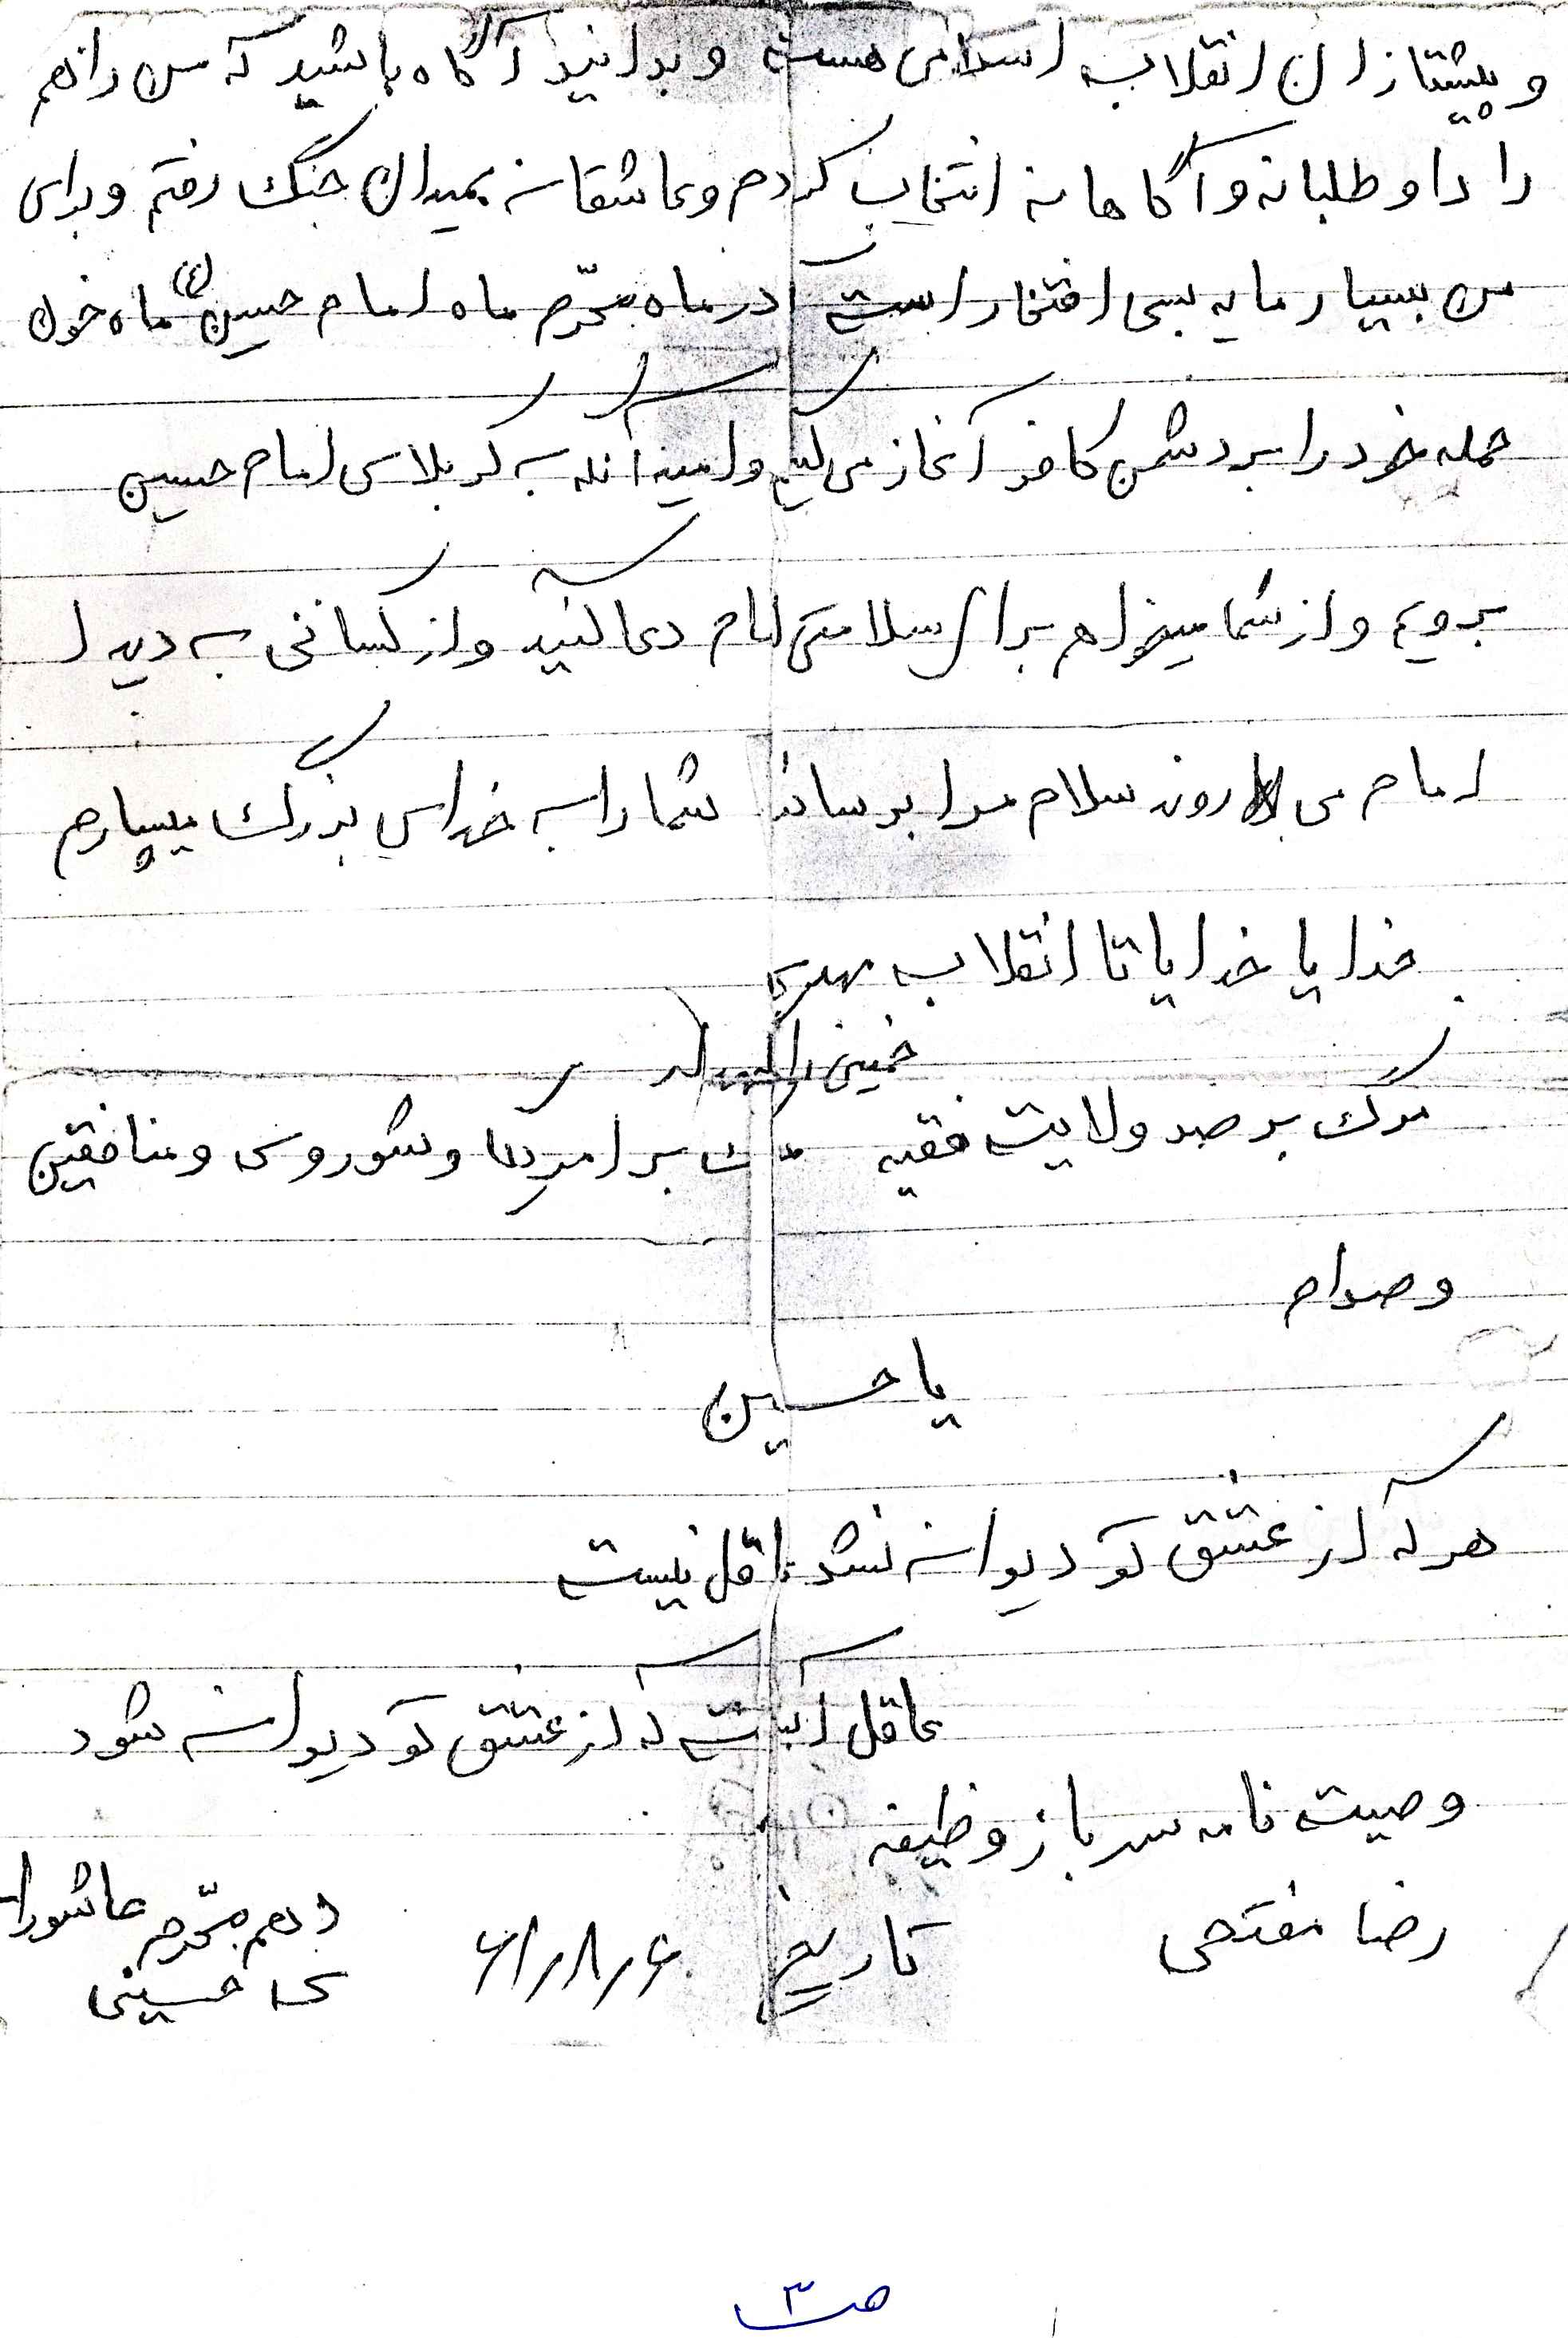 و پیشتازان انقلاب اسلامی هست و بدانید آگاه باشید که من راهم
را داوطلبانه و آگاهانه انتخاب کردم و عاشقانه بمیدان جنگ رفتم و برای
من بسیار مایه بسی افتخار است در ماه محّرم ماه امام حسین (ع) ماه خون
حمله خود را بر دشمن کافر آغاز می کنیم و امید آنکه به کربلای امام حسین
برویم و از شما میخواهم برای سلامتی امام دعا کنید و از کسانی به دیدار
امام می روند سلام مرا برساند شما را به خدای بزرگ میسپارم
خدایا خدایا تا انقلاب مهدی
خمینی را نگهدار
مرگ بر ضد ولایت فقیه مرگ بر امریکا و شوروی و منافقین
و صدام
یا حسین
هر که از عشق تو دیوانه نشد عاقل نیست
عاقل آنست که از عشق تو دیوانه شود
وصیت نامه سرباز وظیفه
رضا مفتحی تاریخ ۶۱/۸/۶ دهم محّرم عاشورا
ی حسینی
ص ۳